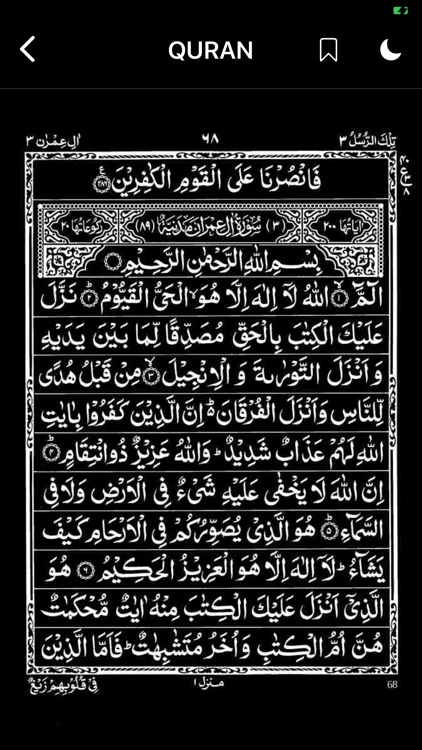 QURAN
تِلْكَ الرُّسُلُ ٣ ٦٨ اٰلِ عِمْرٰن ٣
فَانْصُرْنَا عَلَى الْقَوْمِ الْكٰفِرِيْنَ ۝٢٨٦
اٰيَاتُهَا ٢٠٠ (٣) سُوْرَةُ اٰلِ عِمْرٰنَ مَدَنِيَّةٌ (٨٩) رُكُوْعَاتُهَا ٢٠
بِسْمِ اللّٰهِ الرَّحْمٰنِ الرَّحِيْمِ ۝
الٓمّٓ ۝١ اللّٰهُ لَآ اِلٰهَ اِلَّا هُوَ الْحَيُّ الْقَيُّوْمُ ۝٢ نَزَّلَ
عَلَيْكَ الْكِتٰبَ بِالْحَقِّ مُصَدِّقًا لِّمَا بَيْنَ يَدَيْهِ
وَاَنْزَلَ التَّوْرٰىةَ وَ الْاِنْجِيْلَ ۝٣ مِنْ قَبْلُ هُدًى
لِّلنَّاسِ وَاَنْزَلَ الْفُرْقَانَ ۗ اِنَّ الَّذِيْنَ كَفَرُوْا بِاٰيٰتِ
اللّٰهِ لَهُمْ عَذَابٌ شَدِيْدٌ ؕ وَاللّٰهُ عَزِيْزٌ ذُوانْتِقَامٍ ۝٤
اِنَّ اللّٰهَ لَا يَخْفٰى عَلَيْهِ شَيْءٌ فِى الْاَرْضِ وَلَا فِى
السَّمَآءِ ۝٥ هُوَ الَّذِىْ يُصَوِّرُكُمْ فِى الْاَرْحَامِ كَيْفَ
يَشَآءُ ؕ لَآ اِلٰهَ اِلَّا هُوَ الْعَزِيْزُ الْحَكِيْمُ ۝٦ هُوَ
الَّذِىْٓ اَنْزَلَ عَلَيْكَ الْكِتٰبَ مِنْهُ اٰيٰتٌ مُّحْكَمٰتٌ
هُنَّ اُمُّ الْكِتٰبِ وَاُخَرُ مُتَشٰبِهٰتٌ ؕ فَاَمَّا الَّذِيْنَ
فِىْ قُلُوْبِهِمْ زَيْغٌ منزل ١ 68